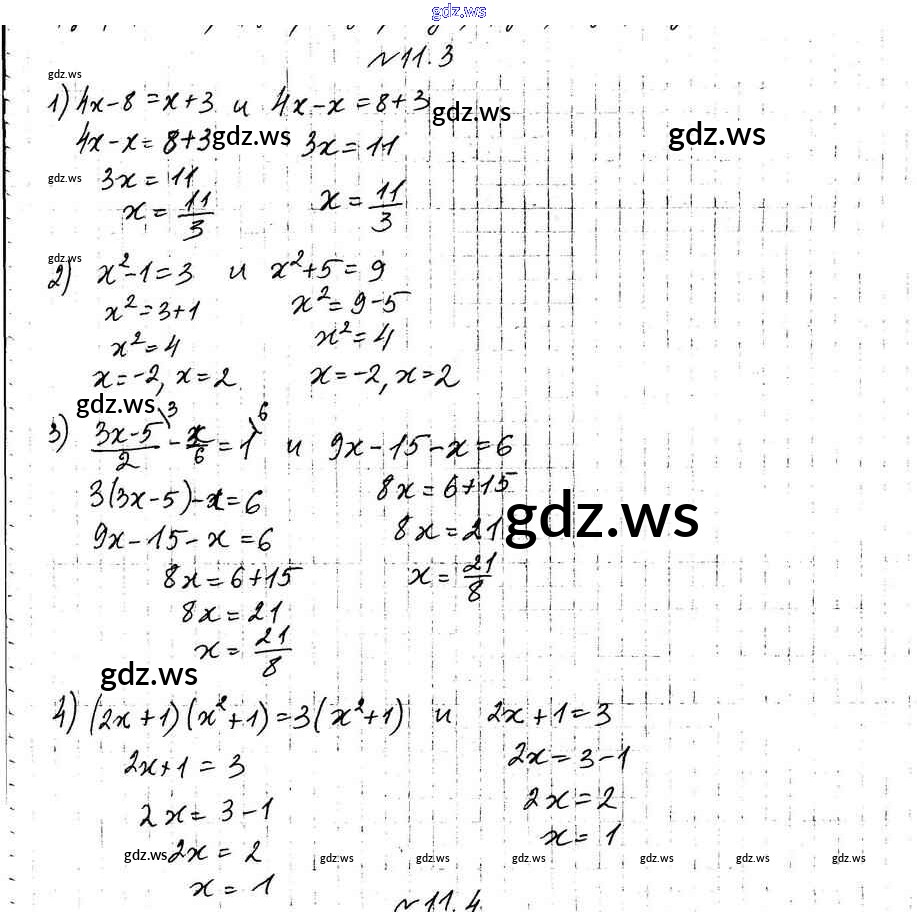 gdz.ws
№11.3
gdz.ws
1) 4x-8=x+3 и 4x-x=8+3 gdz.ws
4x-x=8+3 gdz.ws 3x=11 gdz.ws
gdz.ws 3x=11
x=11/3 x=11/3
gdz.ws
2) x²-1=3 и x²+5=9
x²=3+1 x²=9-5
x²=4 x²=4
x=-2, x=2 x=-2, x=2
gdz.ws
3) (3x-5)/2 \3 - x/6 = 1 \6 и 9x-15-x=6
3(3x-5)-x=6 8x=6+15
9x-15-x=6 8x=21 gdz.ws
8x=6+15 x=21/8
8x=21
x=21/8
gdz.ws
4) (2x+1)(x²+1)=3(x²+1) и 2x+1=3
2x+1=3 2x=3-1
2x=3-1 2x=2
gdz.ws 2x=2 x=1
gdz.ws gdz.ws gdz.ws gdz.ws gdz.ws gdz.ws
x=1
№11.4